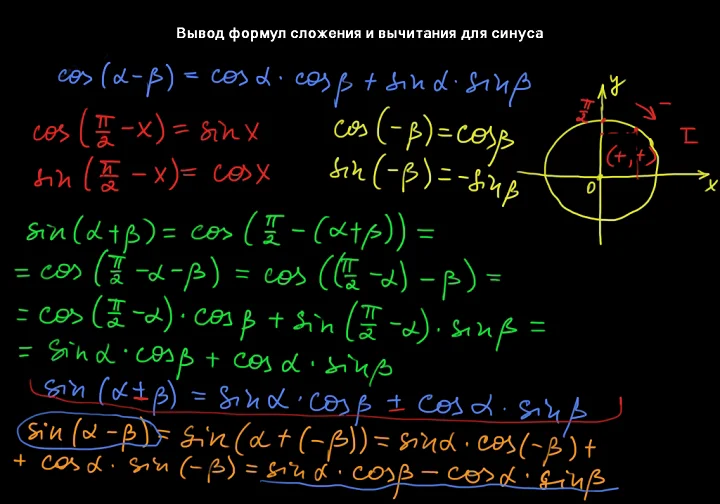 Вывод формул сложения и вычитания для синуса
cos(α-β) = cosα · cosβ + sinα · sinβ
cos(π/2 - x) = sinx
sin(π/2 - x) = cosx
cos(-β) = cosβ
sin(-β) = -sinβ
y
π/2
-
I
(+, +)
0
x
sin(α+β) = cos(π/2 - (α+β)) =
= cos(π/2 - α - β) = cos((π/2 - α) - β) =
= cos(π/2 - α) · cosβ + sin(π/2 - α) · sinβ =
= sinα · cosβ + cosα · sinβ
sin(α ± β) = sinα · cosβ ± cosα · sinβ
sin(α - β) = sin(α + (-β)) = sinα · cos(-β) +
+ cosα · sin(-β) = sinα · cosβ - cosα · sinβ